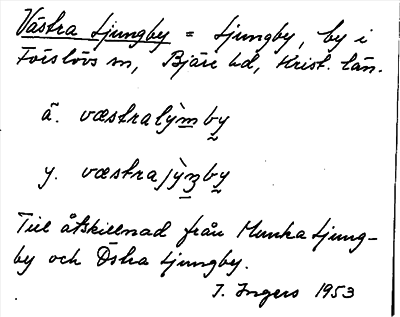 Västra Ljungby = Ljungby, by i
Förslövs sn, Bjäre hd, Krist. län.
ä. væstralỳmby
y. væstrajỳŋby
Till åtskillnad från Munka Ljung-
by och Östra Ljungby.
I. Ingers 1953